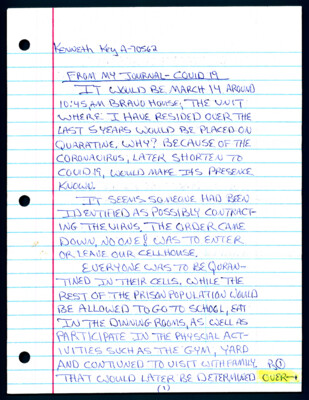 Kenneth Key A-70562
FROM MY JOURNAL - COVID 19
IT WOULD BE MARCH 14 AROUND
10:45 AM BRAVO HOUSE, THE UNIT
WHERE I HAVE RESIDED OVER THE
LAST 5 YEARS WOULD BE PLACED ON
QUARATINE, WHY? BECAUSE OF THE
CORONAVIRUS, LATER SHORTEN TO
COVID 19, WOULD MAKE ITS PRESENCE
KNOWN.
IT SEEMS SOMEONE HAD BEEN
IDENTIFIED AS POSSIBLY CONTRACT-
ING THE VIRUS, THE ORDER CAME
DOWN, NO ONE WAS TO ENTER
OR LEAVE OUR CELLHOUSE.
EVERYONE WAS TO BE QURAN-
TINED IN THEIR CELLS, WHILE THE
REST OF THE PRISON POPULATION WOULD
BE ALLOWED TO GO TO SCHOOL, EAT
IN THE DINNING ROOMS, AS WELL AS
PARTICIPATE IN THE PHYSICAL ACT-
IVITIES SUCH AS THE GYM, YARD
AND CONTIUNED TO VISIT WITH FAMILY.
THAT WOULD LATER BE DETERMINED OVER→
(1)